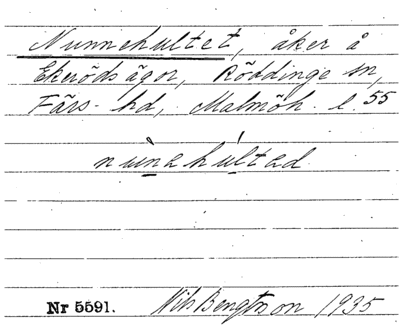 Nunnehultet, åker å
Ekeröds ägor, Röddinge sn,
Färs hd, Malmöh. l. 55
nunehultad
Nr 5591. Nils Bengtsson 1935